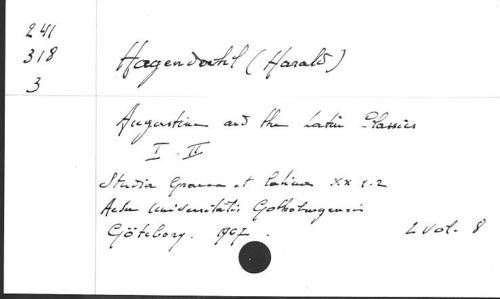 241
318
3
Hagendahl (Harald)
Augustine and the Latin Classics
I. II
Studia Graeca et Latina XX 1-2
Acta Universitatis Gothoburgensis
Göteborg. 1967.
2 vol. 8